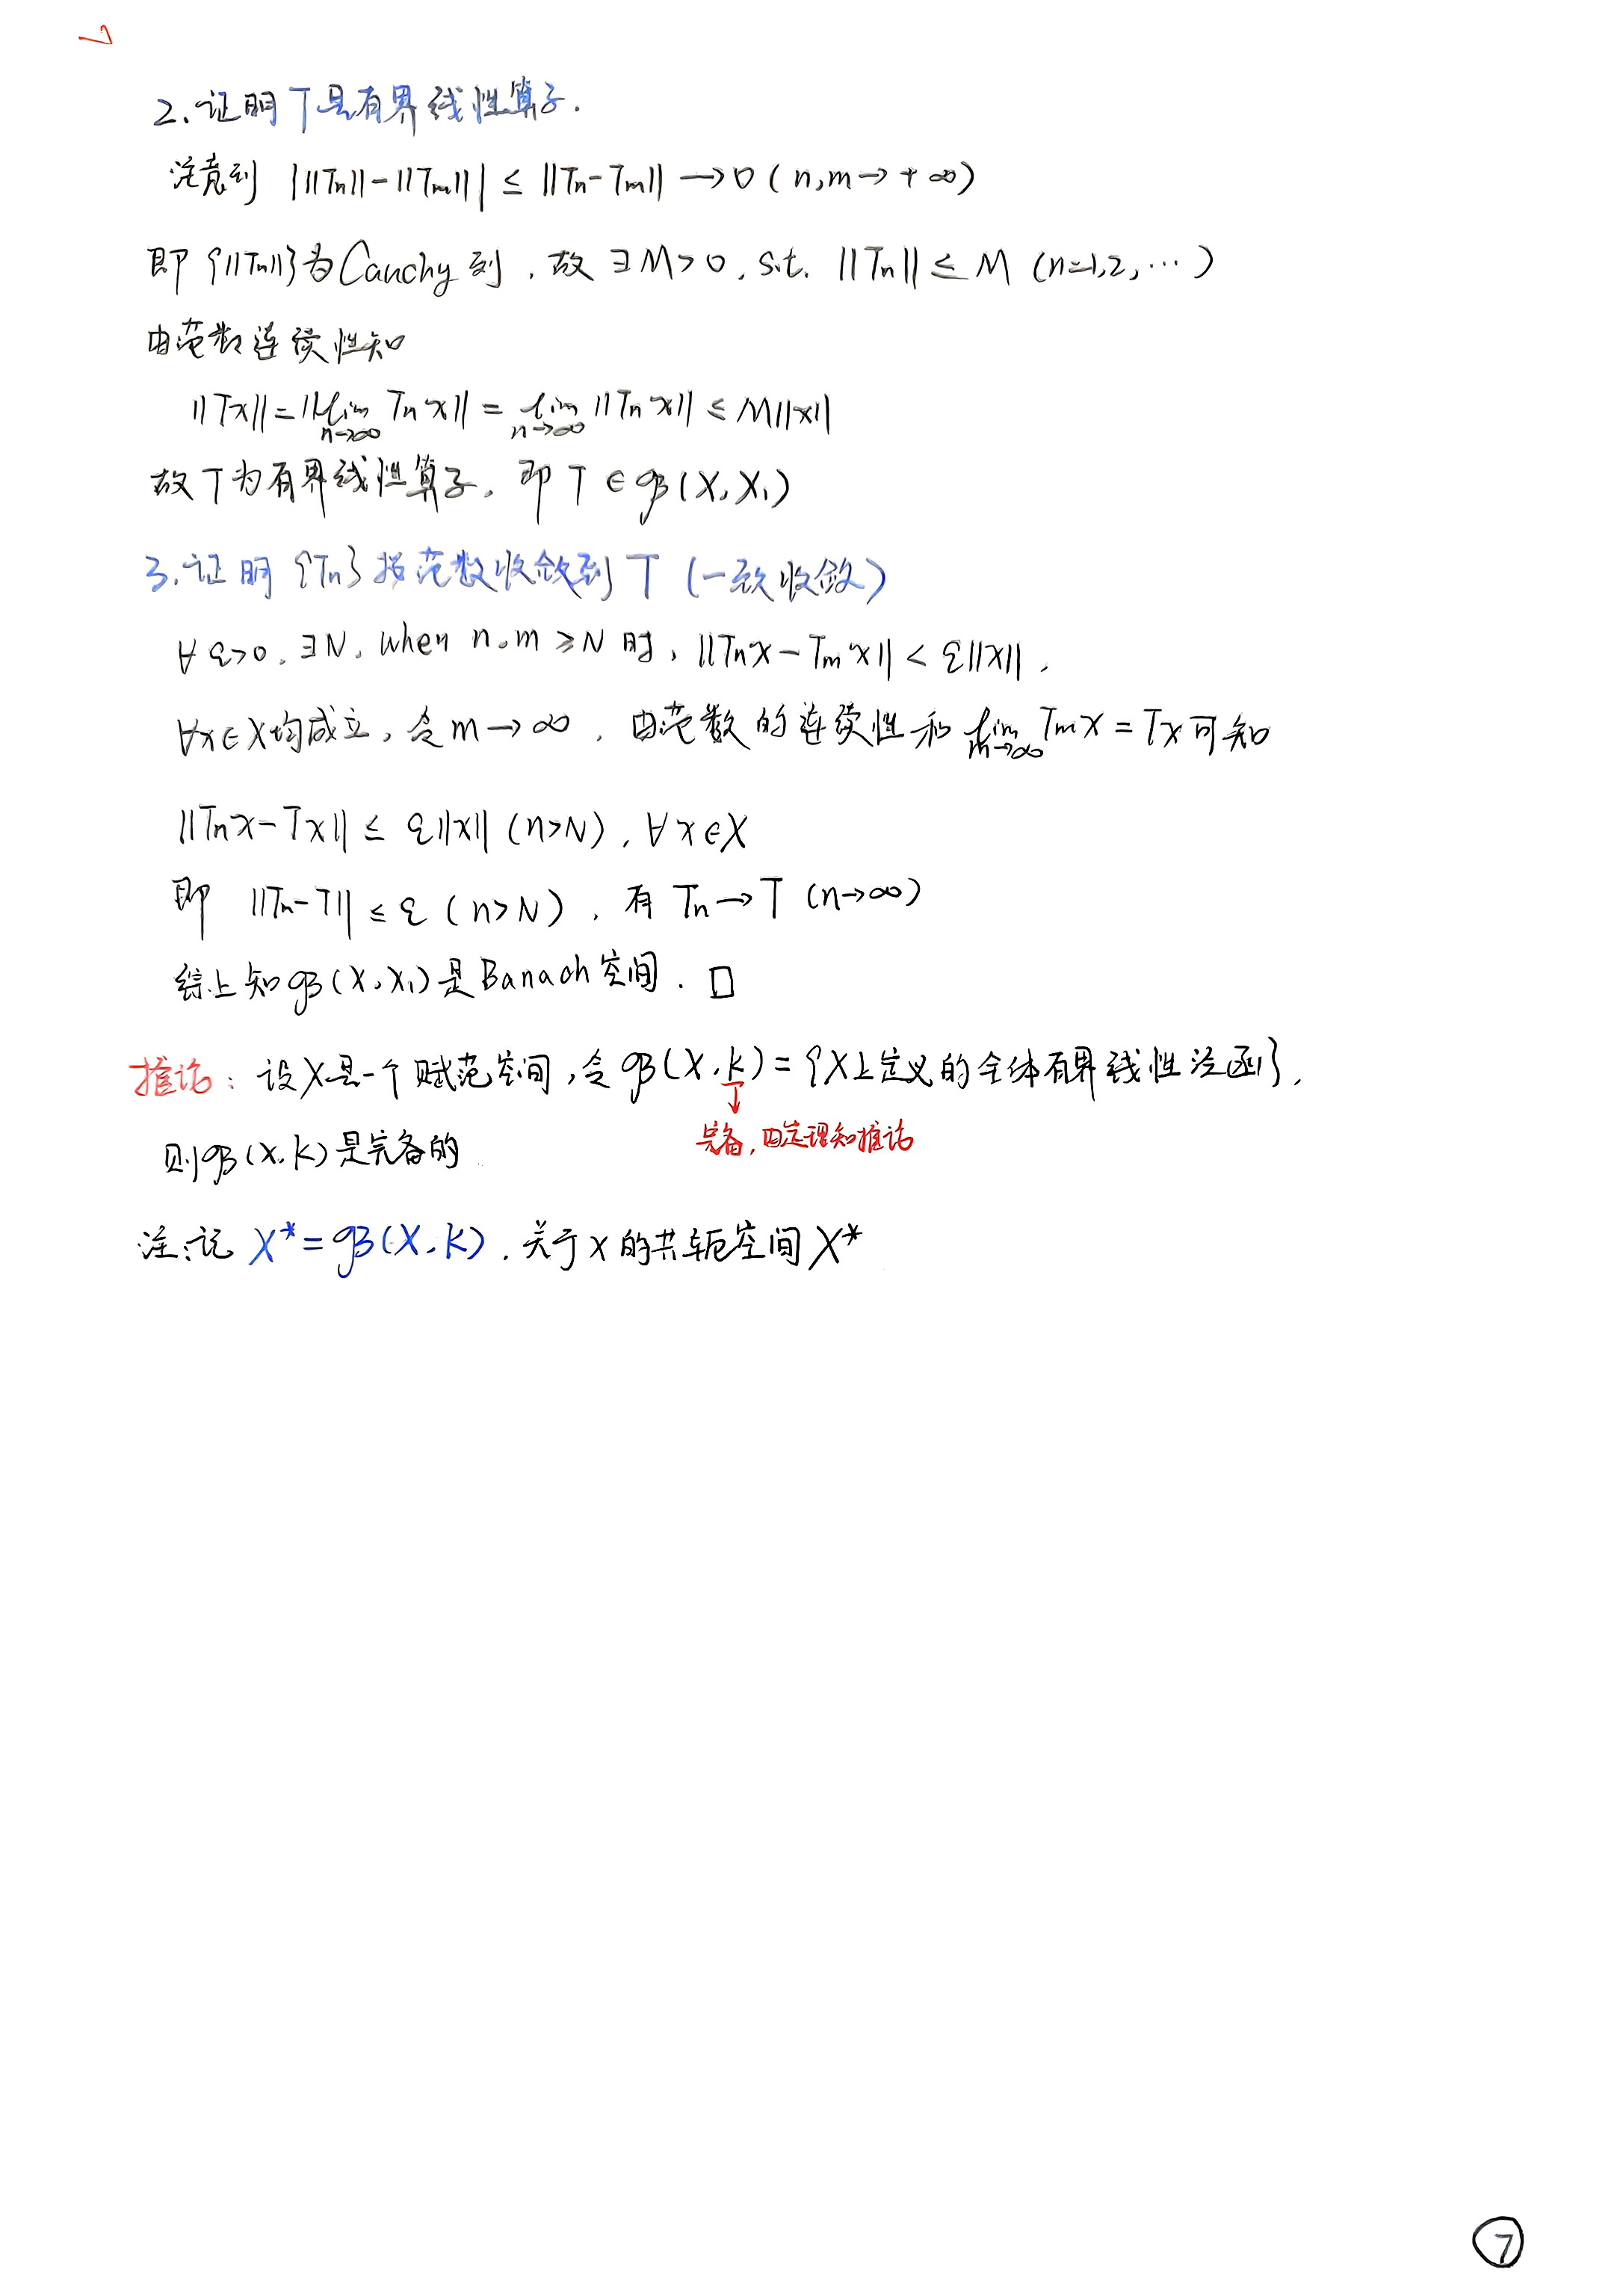 2.证明T是有界线性算子.
注意到 |||Tn||-||Tm||| ≤ ||Tn-Tm|| → 0 (n,m→+∞)
即 {||Tn||}为Cauchy列,故∃M>0, s.t. ||Tn|| ≤ M (n=1,2,…)
由范数连续性知
||Tx||=||lim_{n→∞} Tn x|| = lim_{n→∞} ||Tn x|| ≤ M||x||
故T为有界线性算子,即 T∈𝓑(X,X₁)
3.证明{Tn}按范数收敛到T (一致收敛)
∀ε>0,∃N,when n,m≥N时,||Tnx-Tmx|| < ε||x||,
∀x∈X均成立,令m→∞,由范数的连续性和 lim_{m→∞} Tmx=Tx可知
||Tnx-Tx|| ≤ ε||x|| (n>N),∀x∈X
即 ||Tn-T|| ≤ ε (n>N),有 Tn→T (n→∞)
综上知𝓑(X,X₁)是Banach空间. □
推论:设X是一个赋范空间,令𝓑(X,K)={X上定义的全体有界线性泛函},
↓
完备,由定理知推论
则𝓑(X,K)是完备的
注:记 X*=𝓑(X,K).关于X的共轭空间X*
7